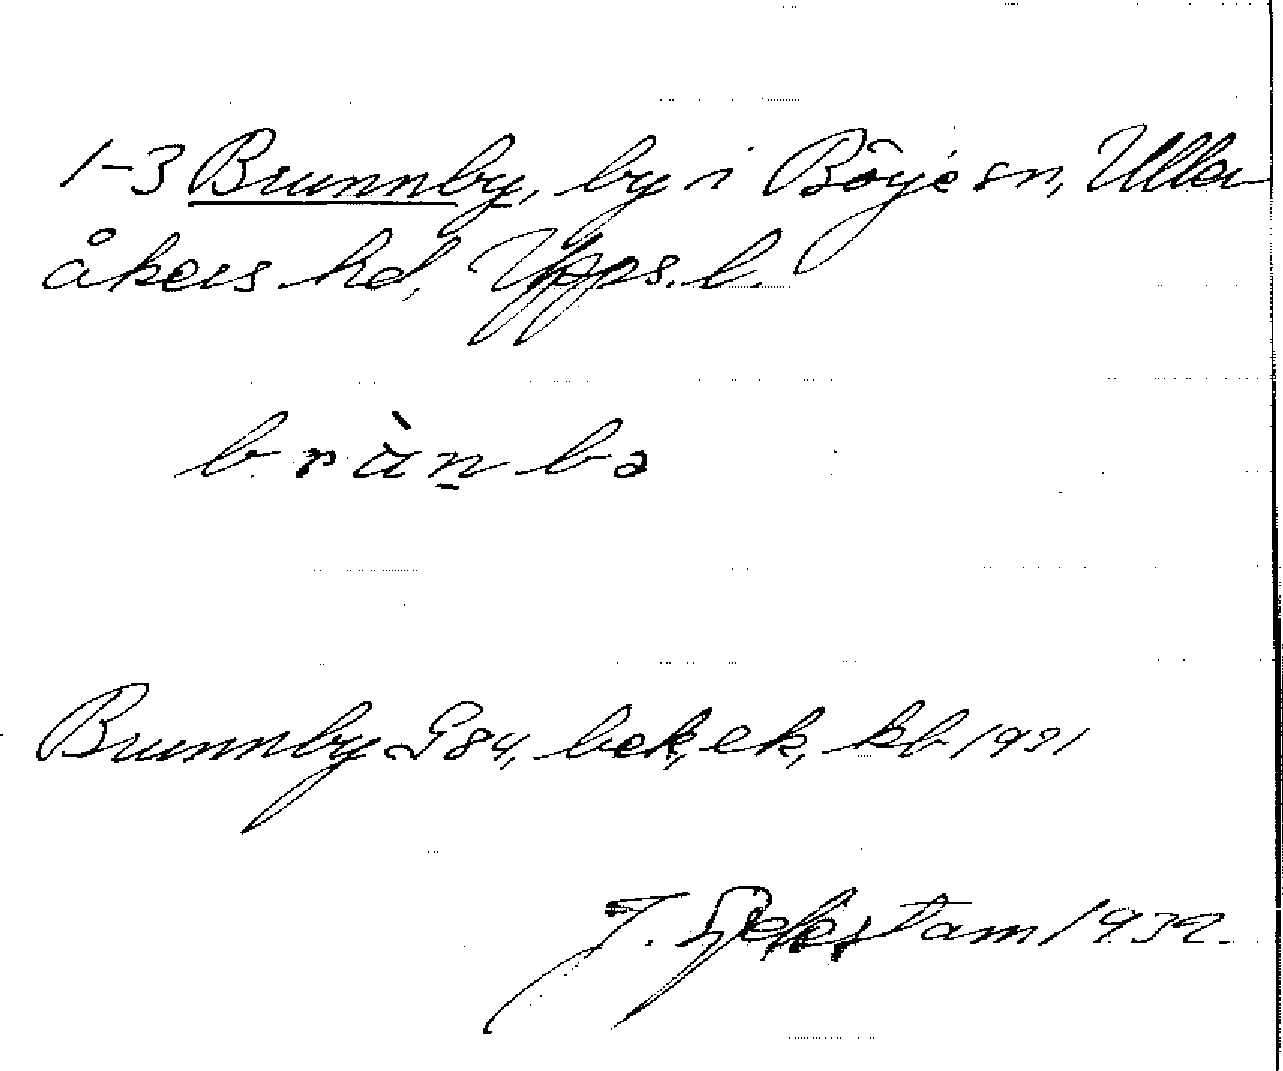 1-3 Brunnby, by i Böije sn, Uller
åkers hd, Upps. l.
bràn̲bə
Brunnby G84, bek, ek, kb 1931
J. Sjekstam 1932.